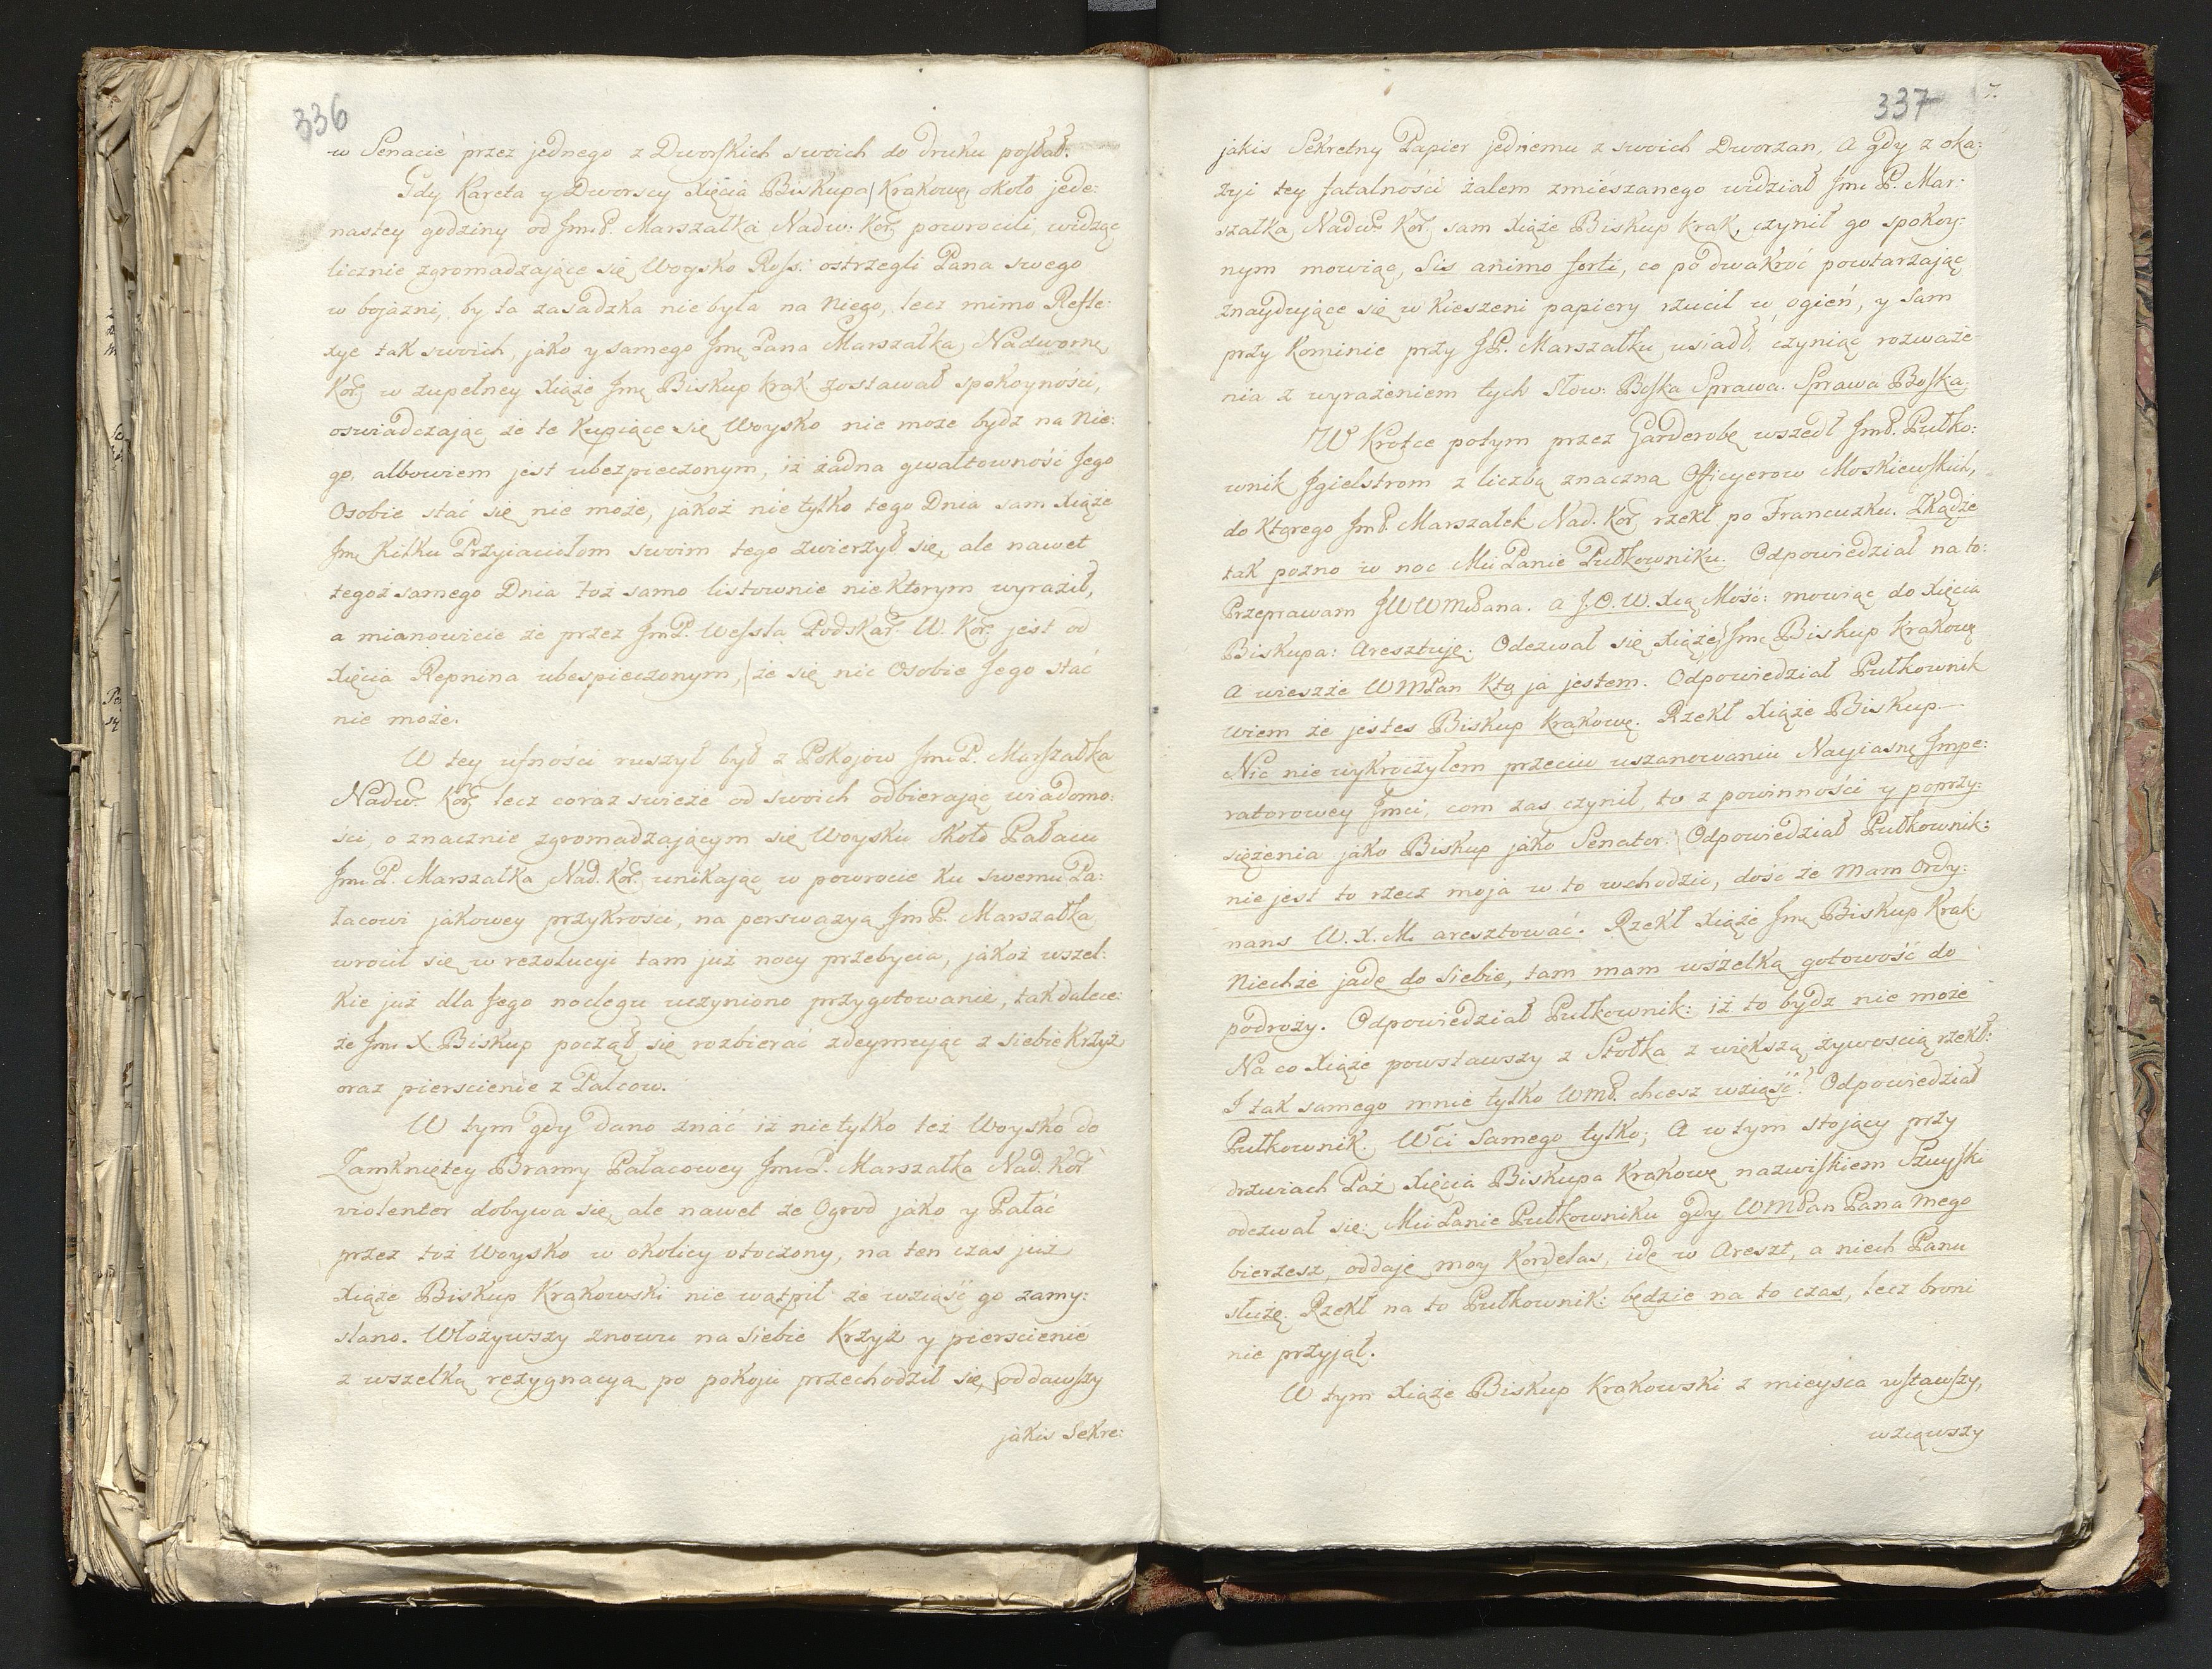 336
w Senacie przez jednego z Dworskich swoich do druku posłał.
Gdy Kareta y Dworscy Xięcia Biskupa Krakowę około jede:
nastey godziny od Jm. P. Marszałka Nadw: Kor. powrocili, widząc
licznie zgromadzające się Woysko Ross: ostrzegli Pana swego
w bojazni, by ta zasadzka nie była na Niego, lecz mimo Refle:
xye tak swoich, jako y samego Jmę Pana Marszałka Nadwornę
Kor. w zupełney Xiąże Jmę Biskup krak zostawał spokoyności,
oswiadczając że te Kupiące się Woysko nie może bydz na Nie:
go, albowiem jest ubezpieczonym, iż żadna gwałtowność Jego
Osobie stać się nie może, jakoż nie tylko tego Dnia sam Xiąże
Jmę Kilku Przyiaciołom swoim tego zwierzył się, ale nawet
tegoż samego Dnia toż samo listownie niektorym wyraził,
a mianowicie że przez Jm P. Wessla Podskar. W. Kor. jest od
Xięcia Repnina ubespieczonym, że się nic Osobie Jego stać
nie może.
W tey ufności ruszył był z Pokojow Jm. P. Marszałka
Nadw. Kor. lecz coraz swieże od swoich odbierając wiadomo:
sci, o znacznie zgromadzającym się Woysku około Pałacu
Jm. P. Marszałka Nad. Kor. unikając w powrocie ku swemu Pa:
łacowi jakowey przykrości, na perswazyą Jm P. Marszałka
wrocił się w rezolucyi tam już nocy przebycia, jakoż wszel:
kie już dla Jego noclegu uczyniono przygotowanie, tak dalece:
że Jm. X Biskup począł się rozbierać zdeymując z siebie Krzyż
oraz pierscienie z Palcow.
W tym gdy dano znać iż nie tylko też Woysko do
Zamkniętey Bramy Pałacowey Jm. P. Marszałka Nad. Kor
violenter dobywa się, ale nawet że Ogrod jako y Pałać
przez toż Woysko w okolicy otoczony, na ten czas już
Xiąże Biskup Krakowski nie wątpił że wziąść go zamy:
slano. Włożywszy znowu na siebie Krzyż y pierscienie
z wszelką rezygnacyą po pokoju przechodził się, oddawszy
jakis Sekre:
337
7.
jakis Sekretny Papier jednemu z swoich Dworzan, A gdy z oka:
zyi tey fatalności żalem zmieszanego widział Jm. P. Mar:
szałka Nadw. Kor. sam Xiąże Biskup krak, czynił go spokoy:
nym mowiąc, Sis animo forti, co po dwakroć powtarzając
znaydujące się w kieszeni papiery rzucił w ogień, y sam
przy Kominie przy J P. Marszałku usiadł, czyniąc rozważe
nia z wyrażeniem tych słow: Boska Sprawa. Sprawa Boska:
W krotce potym przez Garderobę wszedł Jm P. Pułko:
wnik Jgielstrom z liczbą znaczną Officyerow Moskiewskich,
do ktorego Jm P. Marszałek Nad. Kor. rzekł po Francuzku. Zkądże
tak pozno w noc Mći Panie Pułkowniku. Odpowiedział na to:
Przeprawam JWWMPana. a J.O.W. Xcą Mość: mowiąc do Xięcia
Biskupa: Aresztuję. Odezwał się Xiąże Jmę Biskup Krakowę
A wieszże WMPan kto ja jestem. Odpowiedział Pułkownik
wiem że jestes Biskup Krakowę. Rzekł Xiąże Biskup.—
Nic nie wykroczyłem przeciw uszanowaniu Nayiasnę Impe:
ratorowey Jmci, com zas czynił, to z powinności y poprzy:
siężenia jako Biskup jako Senator. Odpowiedział Pułkownik:
nie jest to rzecz moja w to wchodzic, dość że mam Ordy:
nans W. X. M. aresztować. Rzekł Xiąże Jmę Biskup Krak
Niechże jadę do siebie, tam mam wszelką gotowość do
podroży. Odpowiedział Pułkownik: iż to bydz nie może
Na co Xiąże powstawszy z Stołka z większą żywością rzekł:
I tak samego mnie tylko WMP. chcesz wziąść? Odpowiedział
Pułkownik. Wci samego tylko; A w tym stojący przy
drzwiach Paź Xięcia Biskupa Krakowę nazwiskiem Szuyski
odezwał się: Mći Panie Pułkowniku gdy WMPan Pana mego
bierzesz, oddaję moy Kordelas, idę w Areszt, a niech Panu
służę. Rzekł na to Pułkownik: będzie na to czas, lecz broni
nie przyjął.
W tym Xiąże Biskup Krakowski z mieysca wstawszy,
wziąwszy